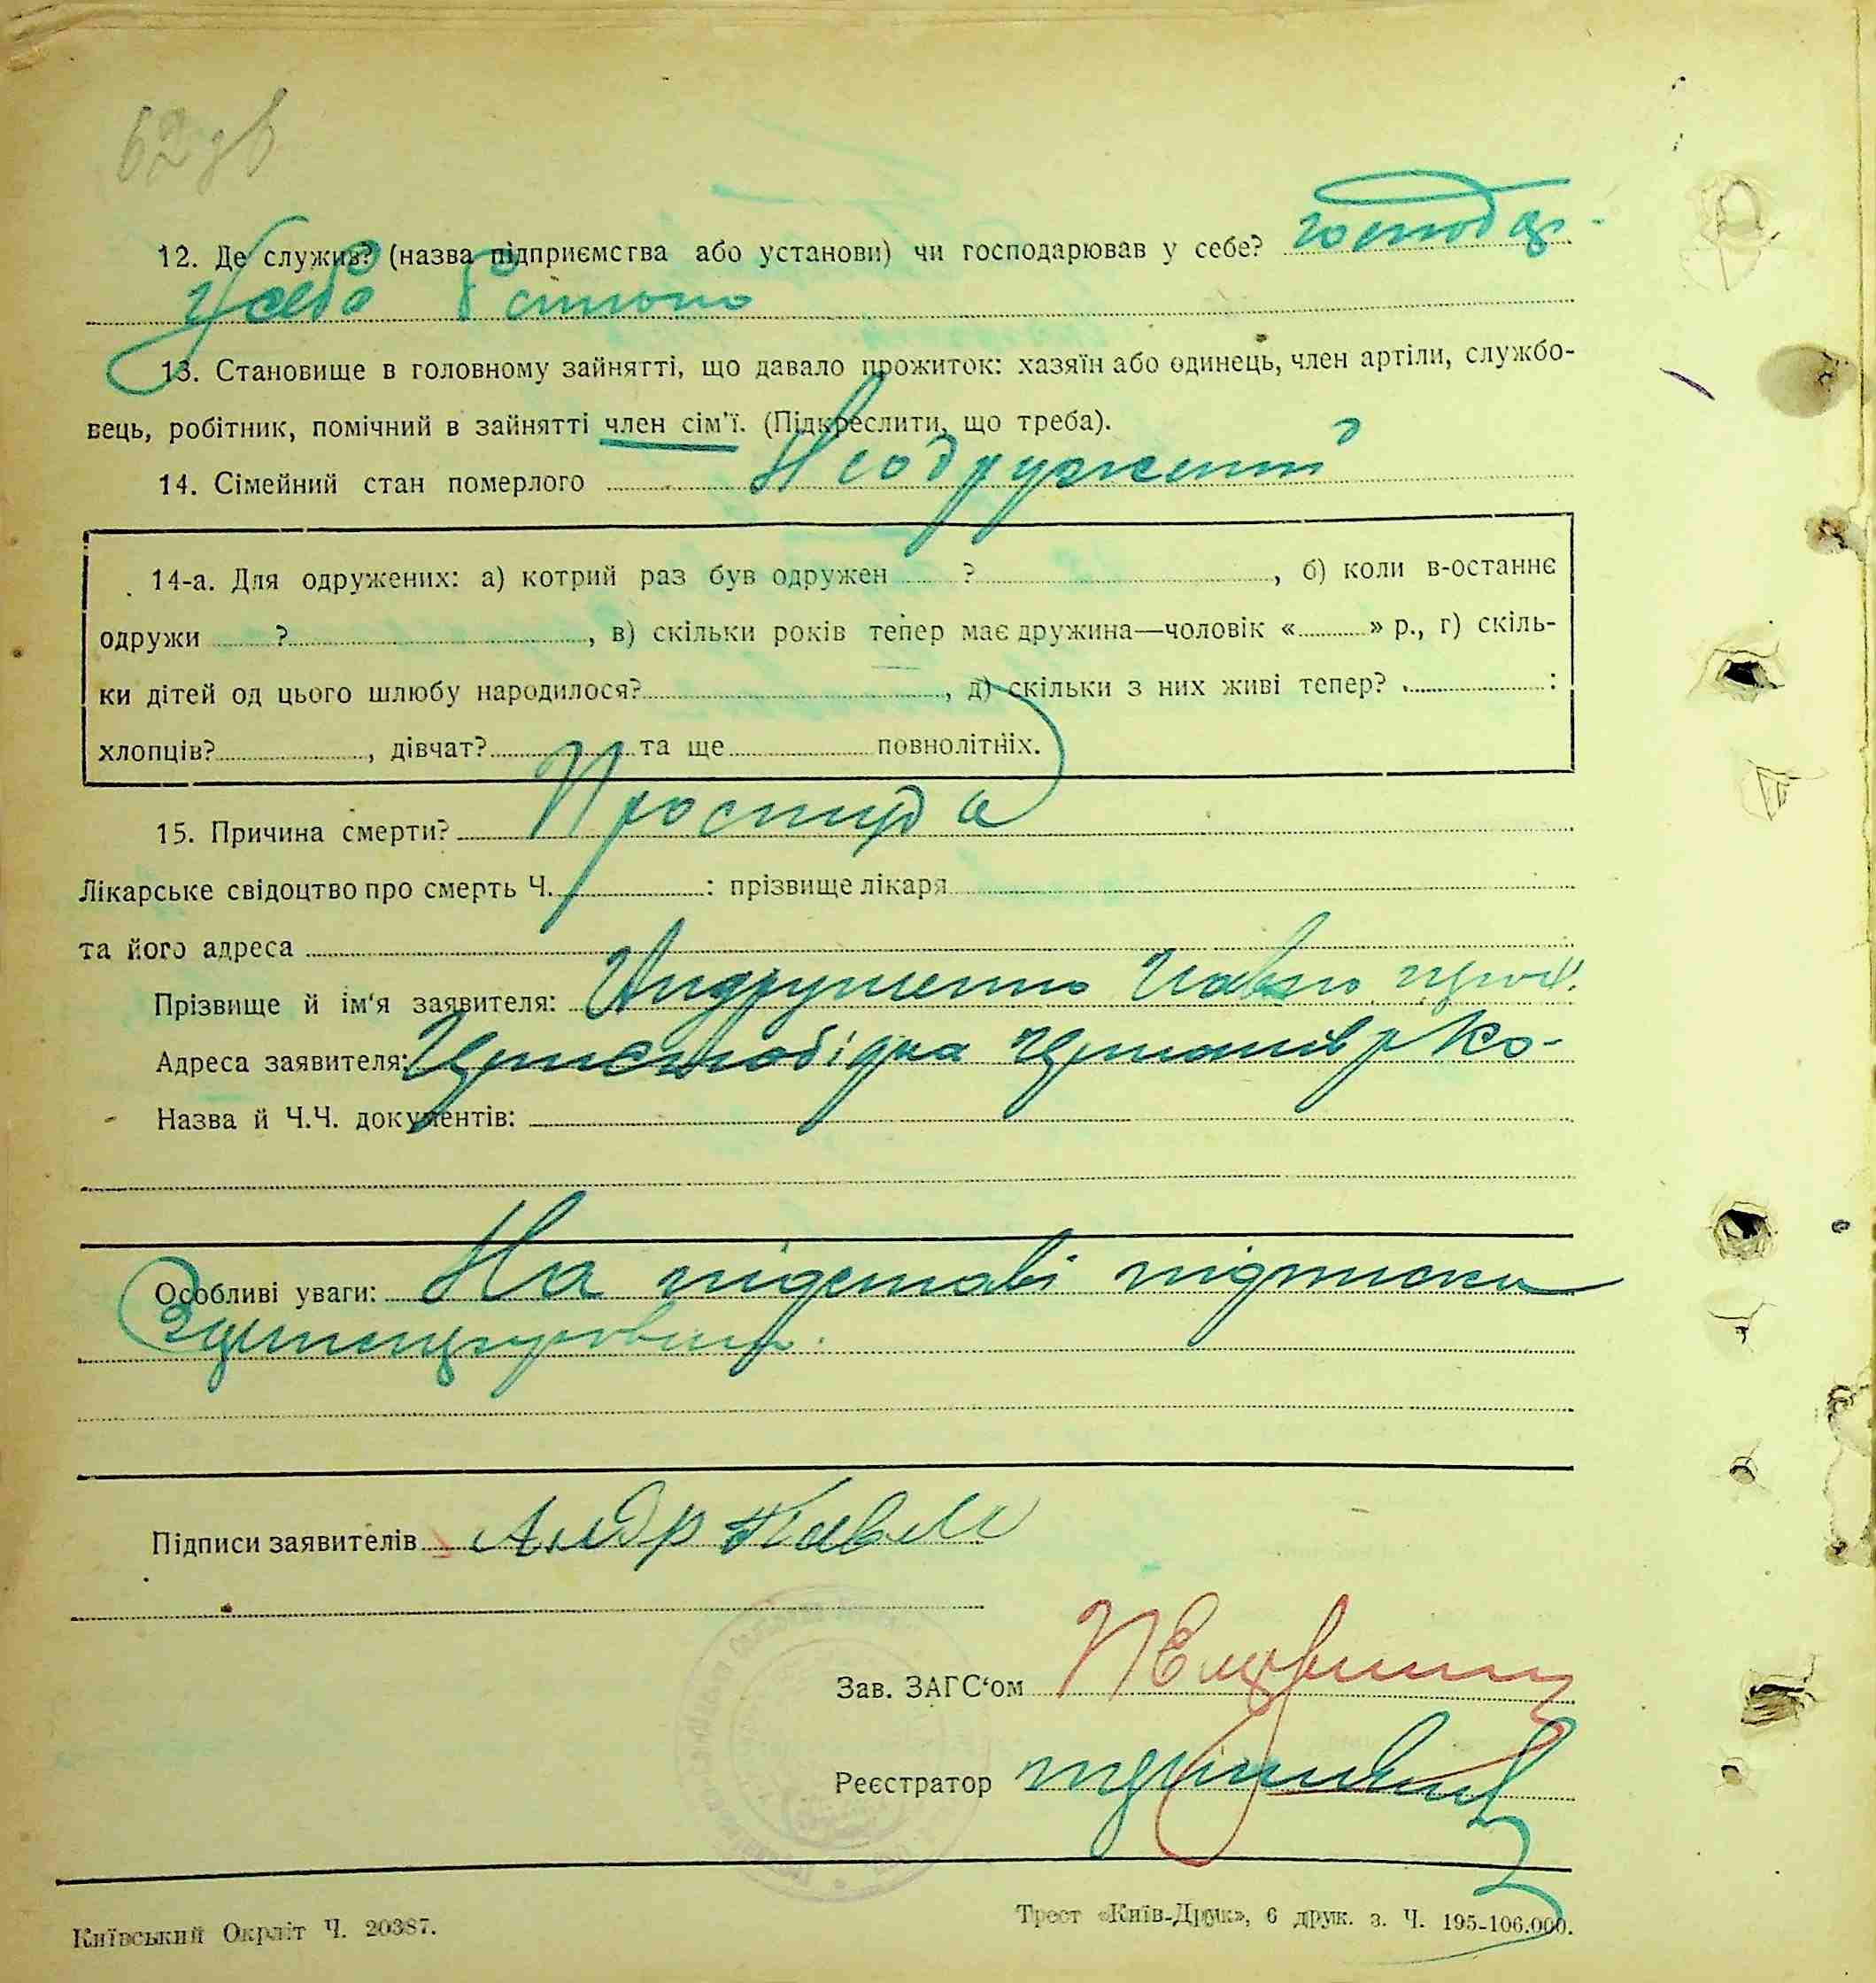 62 зв
12. Де служив? (назва підприємства або установи) чи господарював у себе? господар.
У себе
13. Становище в головному зайнятті, що давало прожиток: хазяїн або одинець, член артіли, службо-
вець, робітник, помічний в зайнятті член сім'ї. (Підкреслити, що треба).
14. Сімейний стан померлого Неодружений
14-а. Для одружених: а) котрий раз був одружен ?, б) коли в-останнє
одружи ?, в) скільки років тепер має дружина—чоловік «» р., г) скіль-
ки дітей од цього шлюбу народилося?, д) скільки з них живі тепер? :
хлопців?, дівчат? та ще повнолітніх.
15. Причина смерти? Простуда
Лікарське свідоцтво про смерть Ч. : прізвище лікаря
та його адреса
Прізвище й ім'я заявителя: Андрушенко Павло
Адреса заявителя:
Назва й Ч.Ч. документів:
Особливі уваги: На підставі підписки
Підписи заявителів Андр Павло
Зав. ЗАГС'ом
Реєстратор
Київський Окрліт Ч. 20387.
Трест «Київ-Друк», 6 друк. з. Ч. 195-106.000.